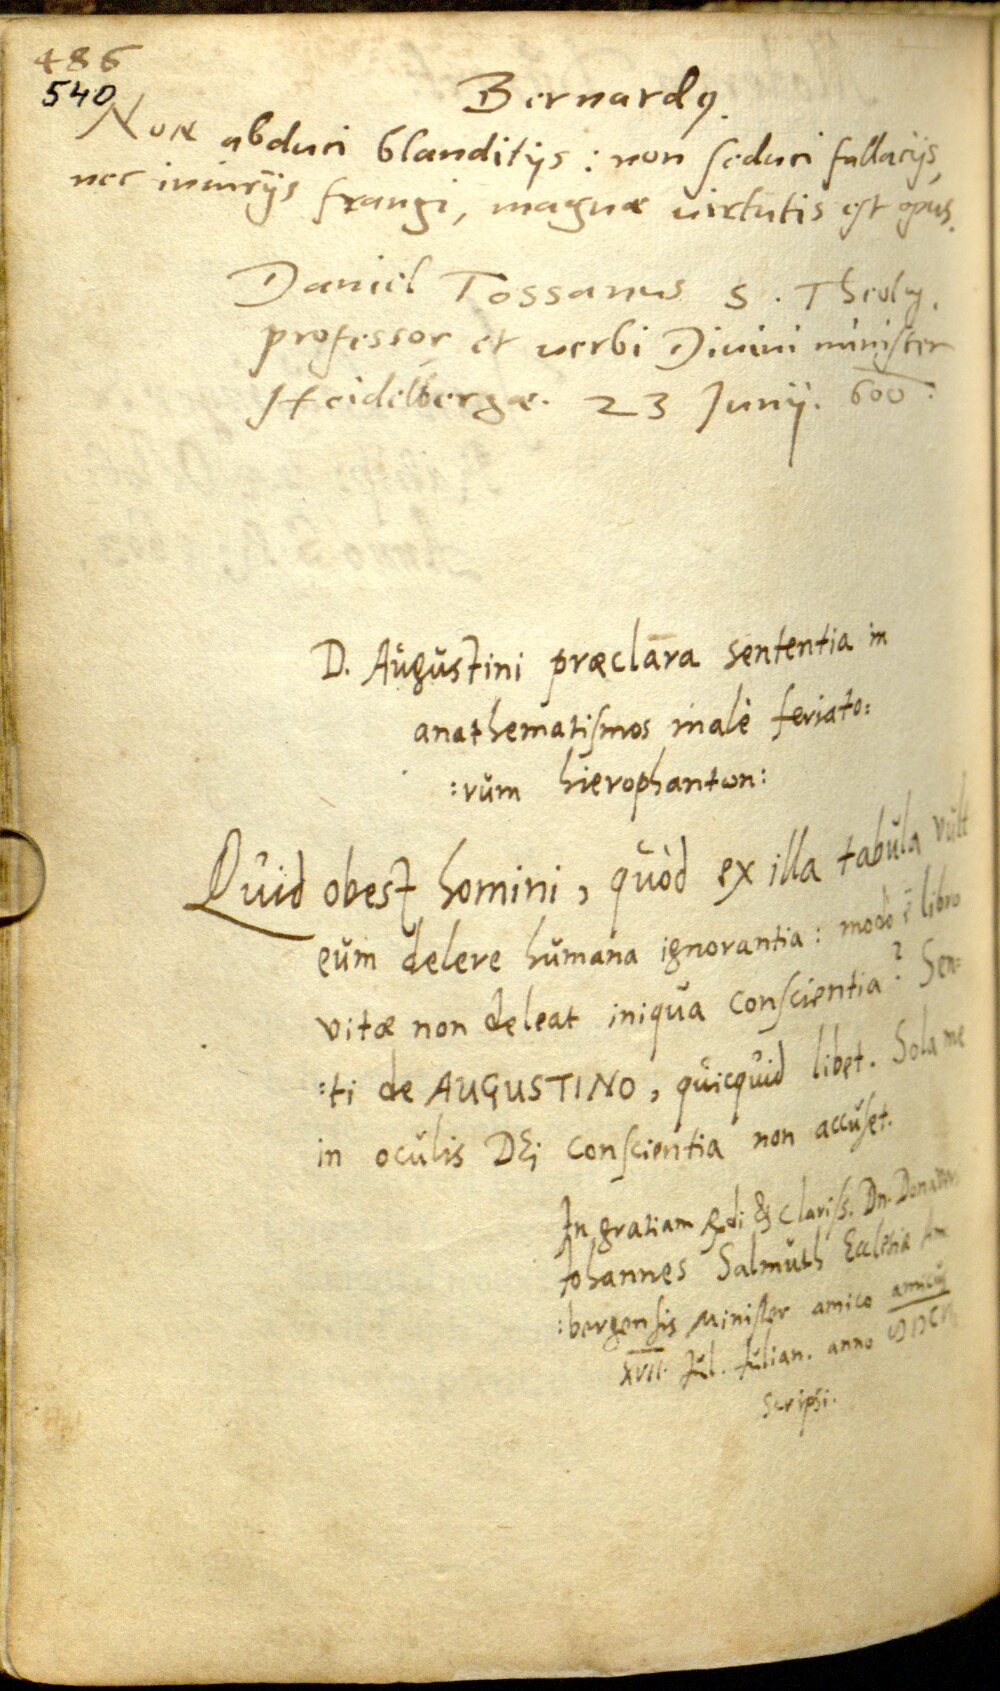 486
540
Bernardq.
Non abduci blanditijs: non seduci fallacijs,
nec iniurijs frangi, magnæ virtutis est opus.
Daniel Tossanus S. Theolog.
professor et verbi Divini minister
Heidelbergæ. 23 Junij. 600.
D. Augustini præclara sententia in
anathematismos malè feriato:
:rum hierophantων:
Quid obest homini, quòd ex illa tabula vult
eum delere humana ignorantia: modò è libro
vitæ non deleat iniqua conscientia? Sen:
:ti de AUGUSTINO, quicquid libet. Sola me
in oculis DEi conscientia non accuset.
In gratiam & Clariss. Dn.
Johannes Salmuth Ecclesiæ Am
:bergensis Minister amico amicus
XVII. Jul. Julian. anno
scripsi.